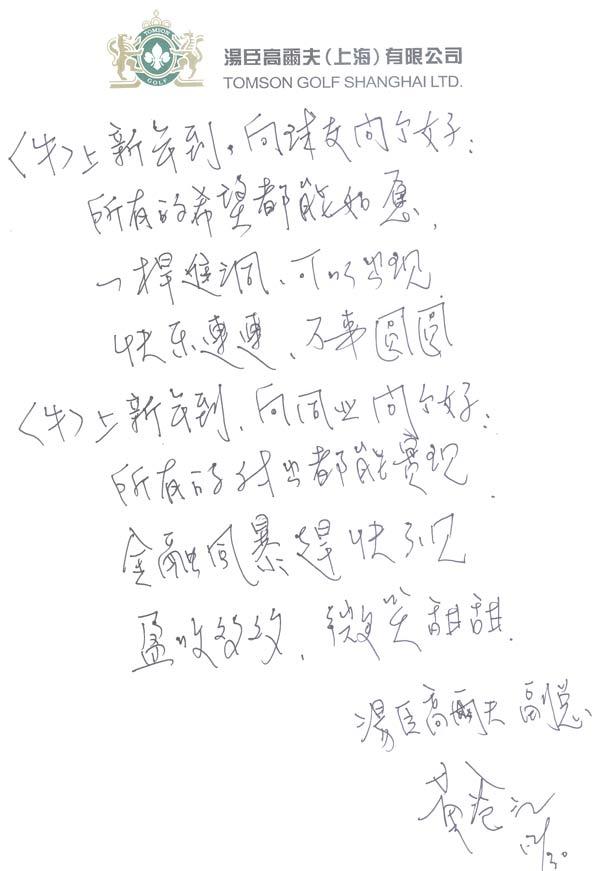 TOMSON
GOLF
湯臣高爾夫(上海)有限公司
TOMSON GOLF SHANGHAI LTD.
<牛>上新年到,向球友问个好:
所有的希望都能如愿,
一桿進洞、可以出现
快乐連連、万事圆圆
<牛>上新年到,向同业问个好:
所有的付出都能實现
金融风暴趕快不见
盈收,微笑甜甜.
湯臣高爾夫 副总
黄
12/30